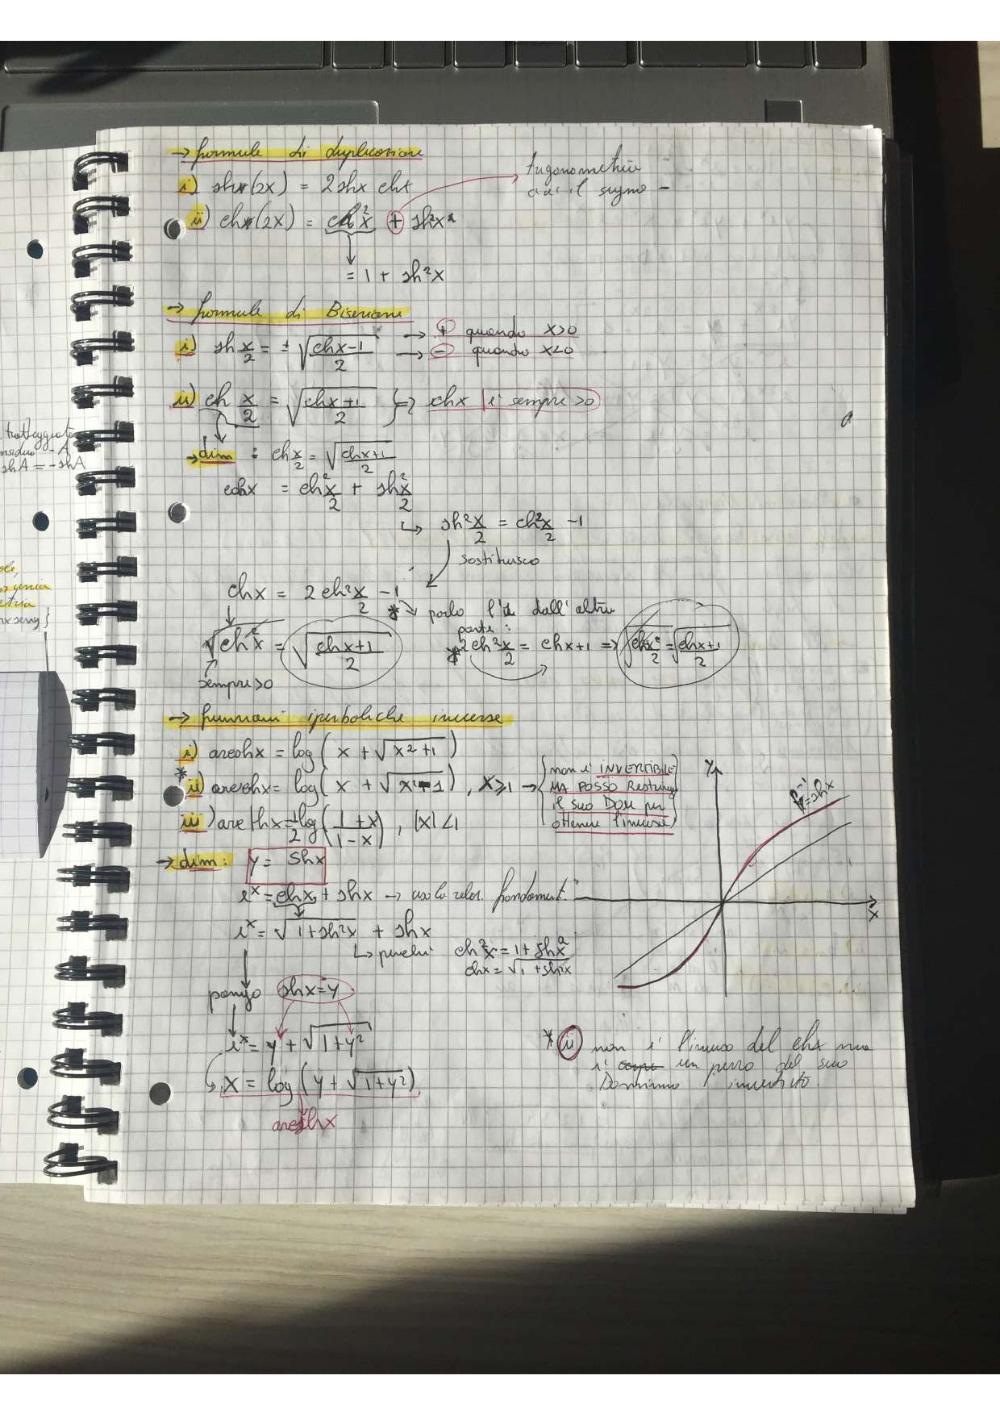 → formule di duplicazione
i) sh(2x) = 2shx chx
trigonometria
il segno -
ii) ch(2x) = ch²x + sh²x
= 1 + sh²x
→ formule di Bisezione
i) sh x/2 = ± √((chx-1)/2) → + quando x>0
→ - quando x<0
ii) ch x/2 = √((chx+1)/2) } → chx è sempre >0
→ dim : ch x/2 = √((chx+1)/2)
chx = ch² x/2 + sh² x/2
↳ sh² x/2 = ch² x/2 - 1
sostituisco
chx = 2ch² x/2 - 1
* → porto l'1 dall'altra
parte:
√ch²x = √((chx+1)/2)
* 2ch² x/2 = chx+1 => √ch² x/2 = √((chx+1)/2)
sempre >0
→ funzioni iperboliche inverse
i) areshx = log(x + √(x²+1))
* ii) arechx = log(x + √(x²-1)), x⩾1 → { non è INVERTIBILE
MA POSSO Restring
il suo DOM per
ottenere l'inversa }
iii) arethx = 1/2 log((1+x)/(1-x)), |x|<1
→ dim: y = shx
eˣ = chx + shx → uso la relaz. fondament.
eˣ = √(1+sh²x) + shx
↳ perché ch²x = 1+sh²x
chx = √(1+sh²x)
pongo shx=y
eˣ = y + √(1+y²)
x = log(y + √(1+y²))
areshx
y
f⁻¹=shx
x
* ii) non è l'inversa del chx ma
è un pezzo del suo
Dominio invertito.
tratteggiato
- A
shA = -shA